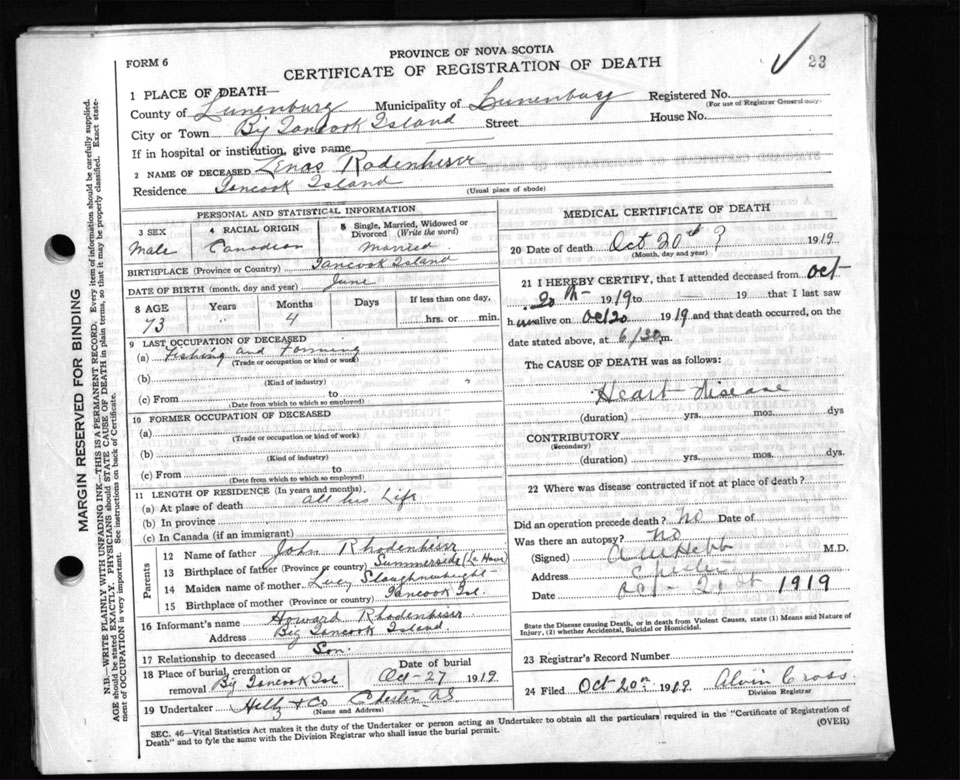 PROVINCE OF NOVA SCOTIA
FORM 6
CERTIFICATE OF REGISTRATION OF DEATH
23
1 PLACE OF DEATH—
County of Lunenburg Municipality of Lunenburg Registered No.
(For use of Registrar General only)
City or Town Big Tancook Island Street House No.
If in hospital or institution, give name
2 NAME OF DECEASED Zenas Rodenhiser
Residence Tancook Island
(Usual place of abode)
PERSONAL AND STATISTICAL INFORMATION
3 SEX
Male
4 RACIAL ORIGIN
Canadian
5 Single, Married, Widowed or Divorced (Write the word)
Married
BIRTHPLACE (Province or Country) Tancook Island
DATE OF BIRTH (month, day and year) June
8 AGE Years Months Days If less than one day,
73 4 hrs. or min.
9 LAST OCCUPATION OF DECEASED
(a) Fishing and Farming
(Trade or occupation or kind or work)
(b)
(Kind of industry)
(c) From to
(Date from which to which so employed)
10 FORMER OCCUPATION OF DECEASED
(a)
(Trade or occupation or kind of work)
(b)
(Kind of industry)
(c) From to
(Date from which to which so employed)
11 LENGTH OF RESIDENCE (In years and months)
(a) At place of death all his Life
(b) In province
(c) In Canada (if an immigrant)
Parents
12 Name of father John Rhodenhiser
13 Birthplace of father (Province or country) Summerside (La Have)
14 Maiden name of mother Lucy Slaughnwhight
15 Birthplace of mother (Province or country) Tancook Isl.
16 Informant's name Howard Rhodenhiser
Address Big Tancook Island
17 Relationship to deceased Son.
18 Place of burial, cremation or removal Big Tancook Isl
Date of burial
Oct-27 1919
19 Undertaker & Co Chester NS
(Name and Address)
MEDICAL CERTIFICATE OF DEATH
20 Date of death Oct 20th ? 1919
(Month, day and year)
21 I HEREBY CERTIFY, that I attended deceased from Oct-
20th 1919 to — 19 that I last saw
h alive on Oct 20 1919 and that death occurred, on the
date stated above, at 6/30 m.
The CAUSE OF DEATH was as follows:
Heart disease
(duration) yrs. mos. dys
CONTRIBUTORY
(Secondary)
(duration) yrs. mos. dys.
22 Where was disease contracted if not at place of death?
Did an operation precede death? No Date of
Was there an autopsy? No
(Signed) Hebb M.D.
Address Chester
Date Oct - 21st 1919
State the Disease causing Death, or in death from Violent Causes, state (1) Means and Nature of
Injury, (2) whether Accidental, Suicidal or Homicidal.
23 Registrar's Record Number
24 Filed Oct 20th 1919 Alvin Cross
Division Registrar
SEC. 46—Vital Statistics Act makes it the duty of the Undertaker or person acting as Undertaker to obtain all the particulars required in the "Certificate of Registration of
Death" and to fyle the same with the Division Registrar who shall issue the burial permit.
(OVER)
MARGIN RESERVED FOR BINDING
N.B.—WRITE PLAINLY WITH UNFADING INK—THIS IS A PERMANENT RECORD. Every item of information should be carefully supplied.
AGE should be stated EXACTLY. PHYSICIANS should STATE CAUSE OF DEATH in plain terms, so that it may be properly classified. Exact state-
ment of OCCUPATION is very important. See instructions on back of Certificate.